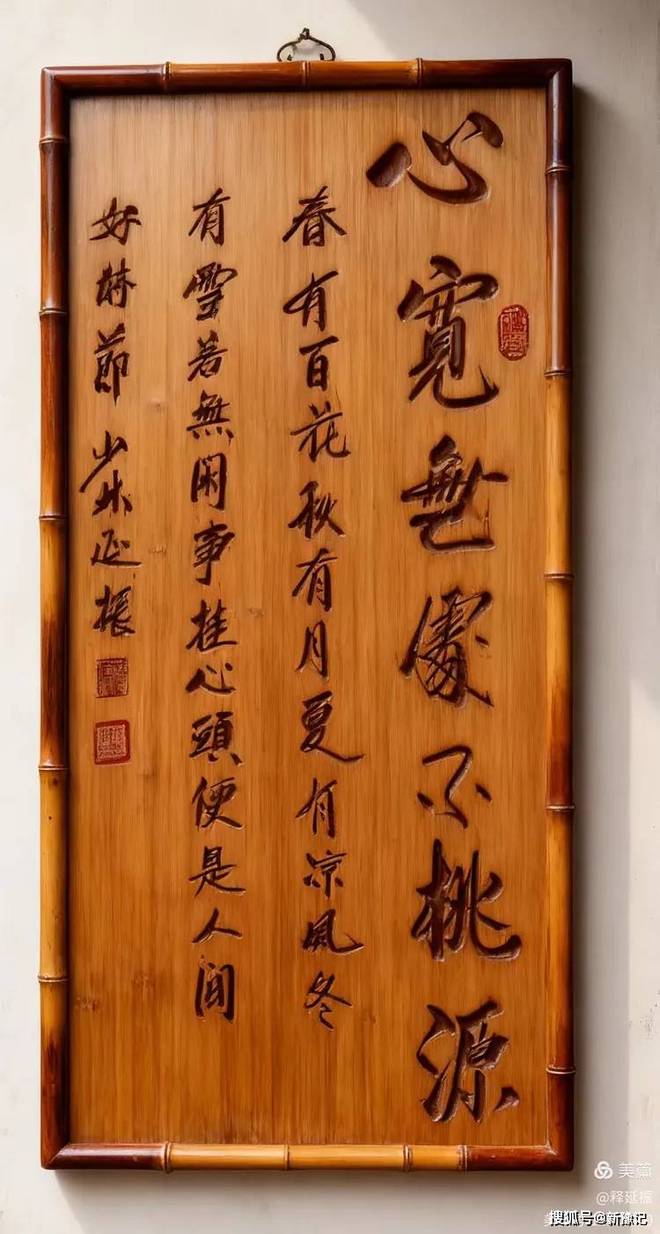 心寬無處不桃源
春有百花秋有月夏有凉風冬
有雪若無閑事挂心頭便是人間
好時節 少林延振
美篇
@释延振
搜狐号@新豫记